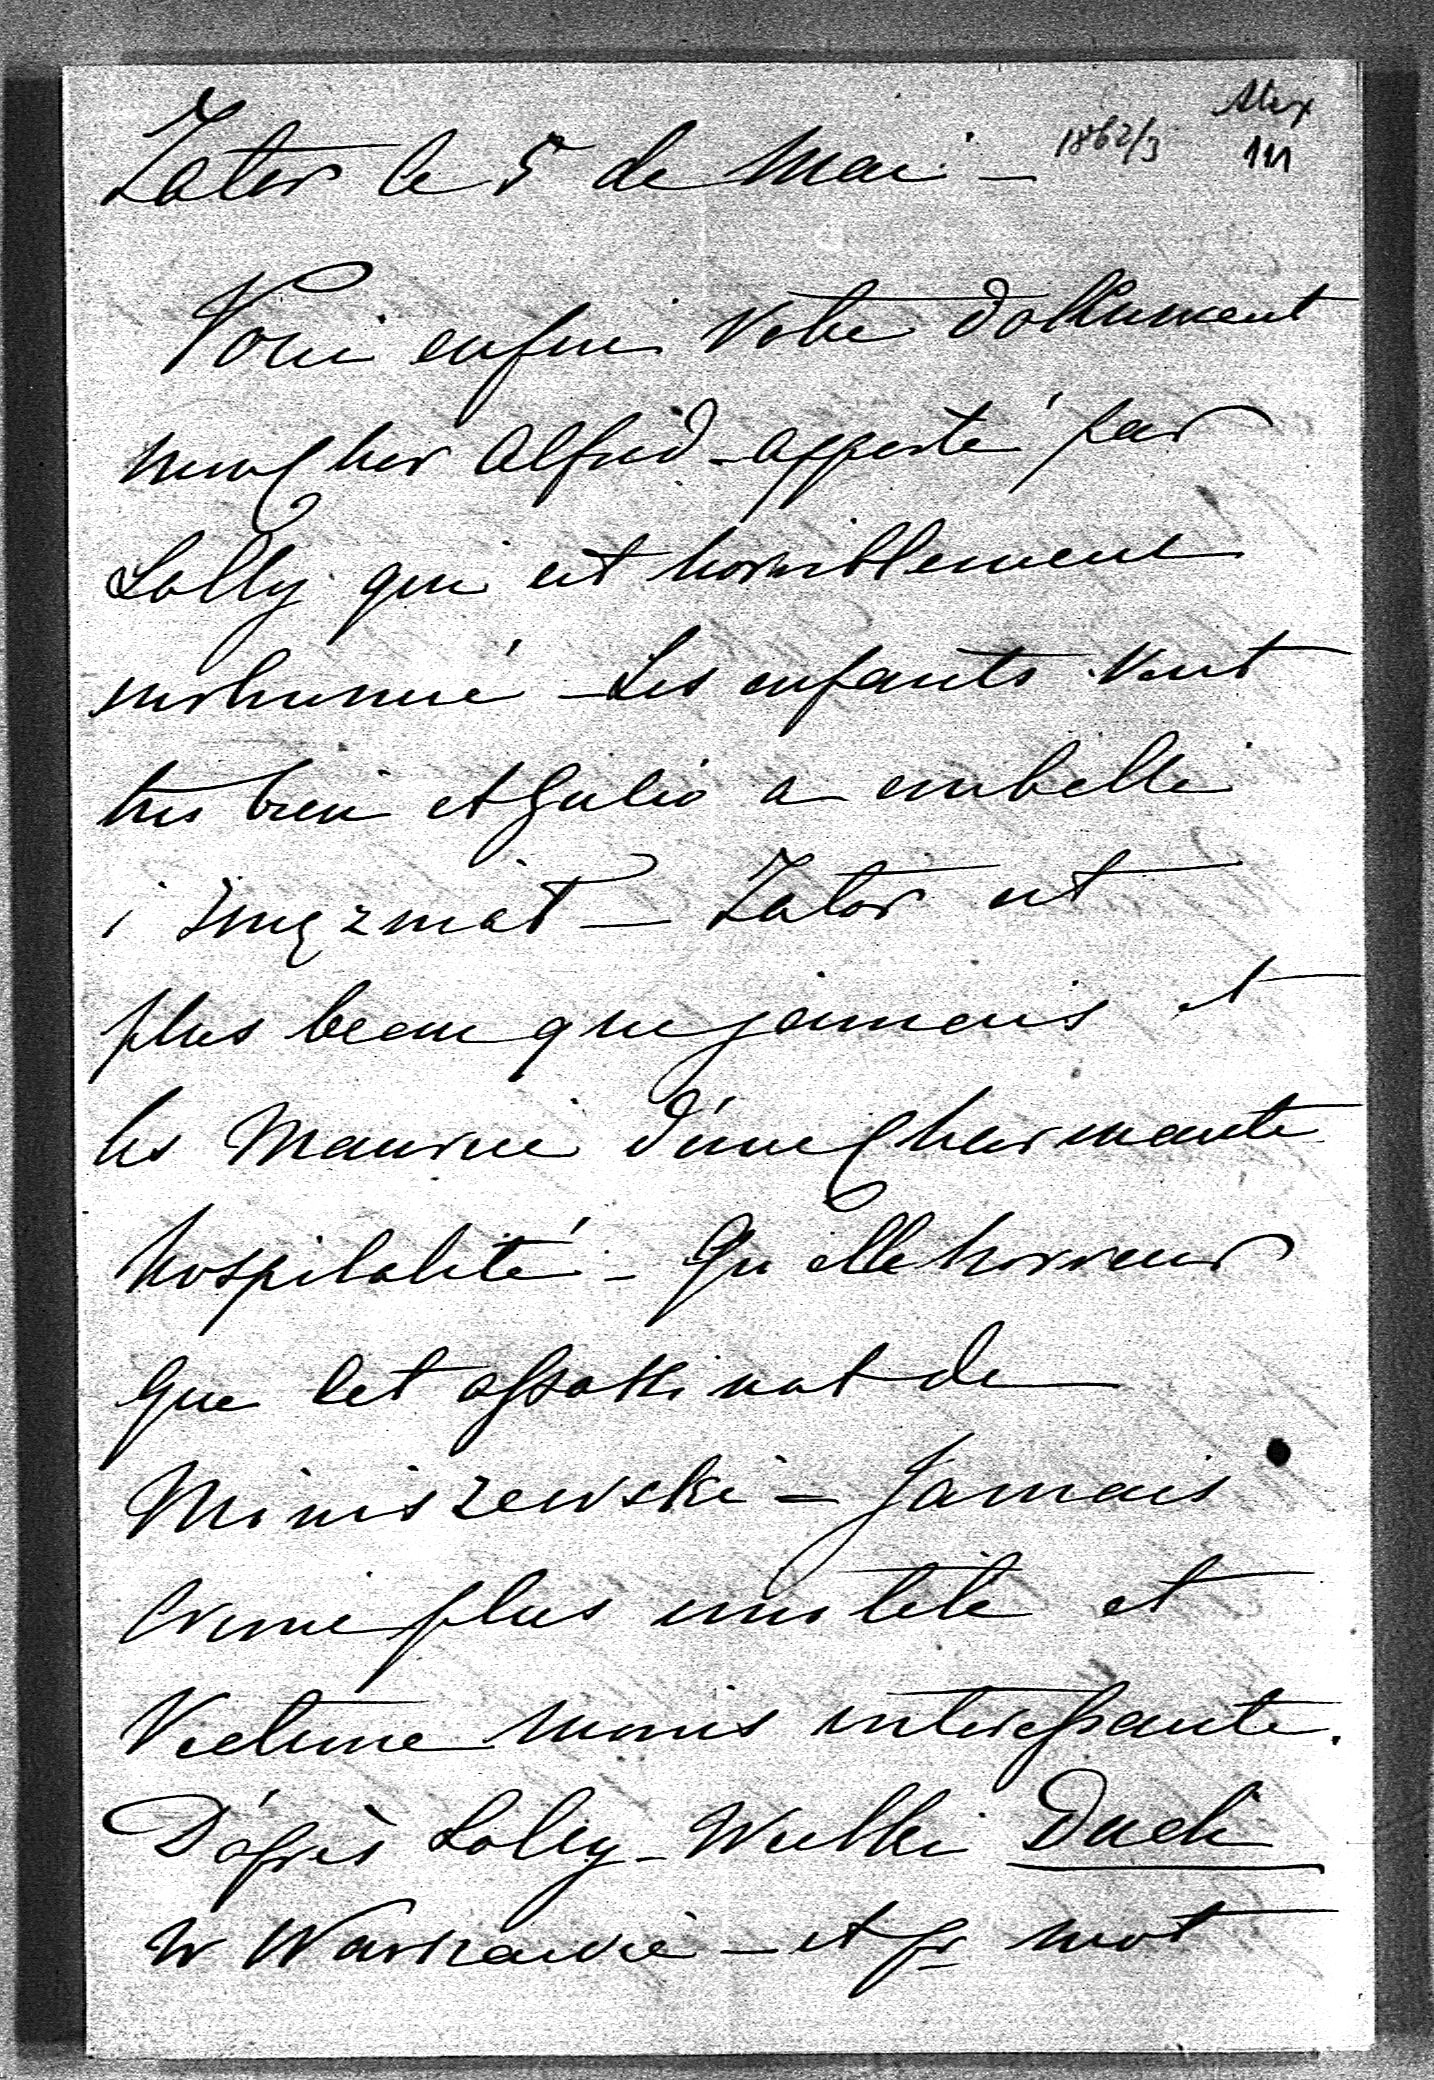 Alex
1862/3 111
Zator le 5 de Mai –
Voici enfin votre dokument
mon cher Alfred – apporté par
Lolly qui est horriblement
enrhumé – Les enfants vont
tres bien et Julio a embelli
i zmęzniał – Zator est
plus beau que jamais et
les Maurice d'une charmante
hospitalité – Quelle horreur
que cet assassinat de
Miniszewski – Jamais
crime plus inutile et
victime moins interessante.
D'après Lolly – Wielki Duch
w Warszawie – et pr mot